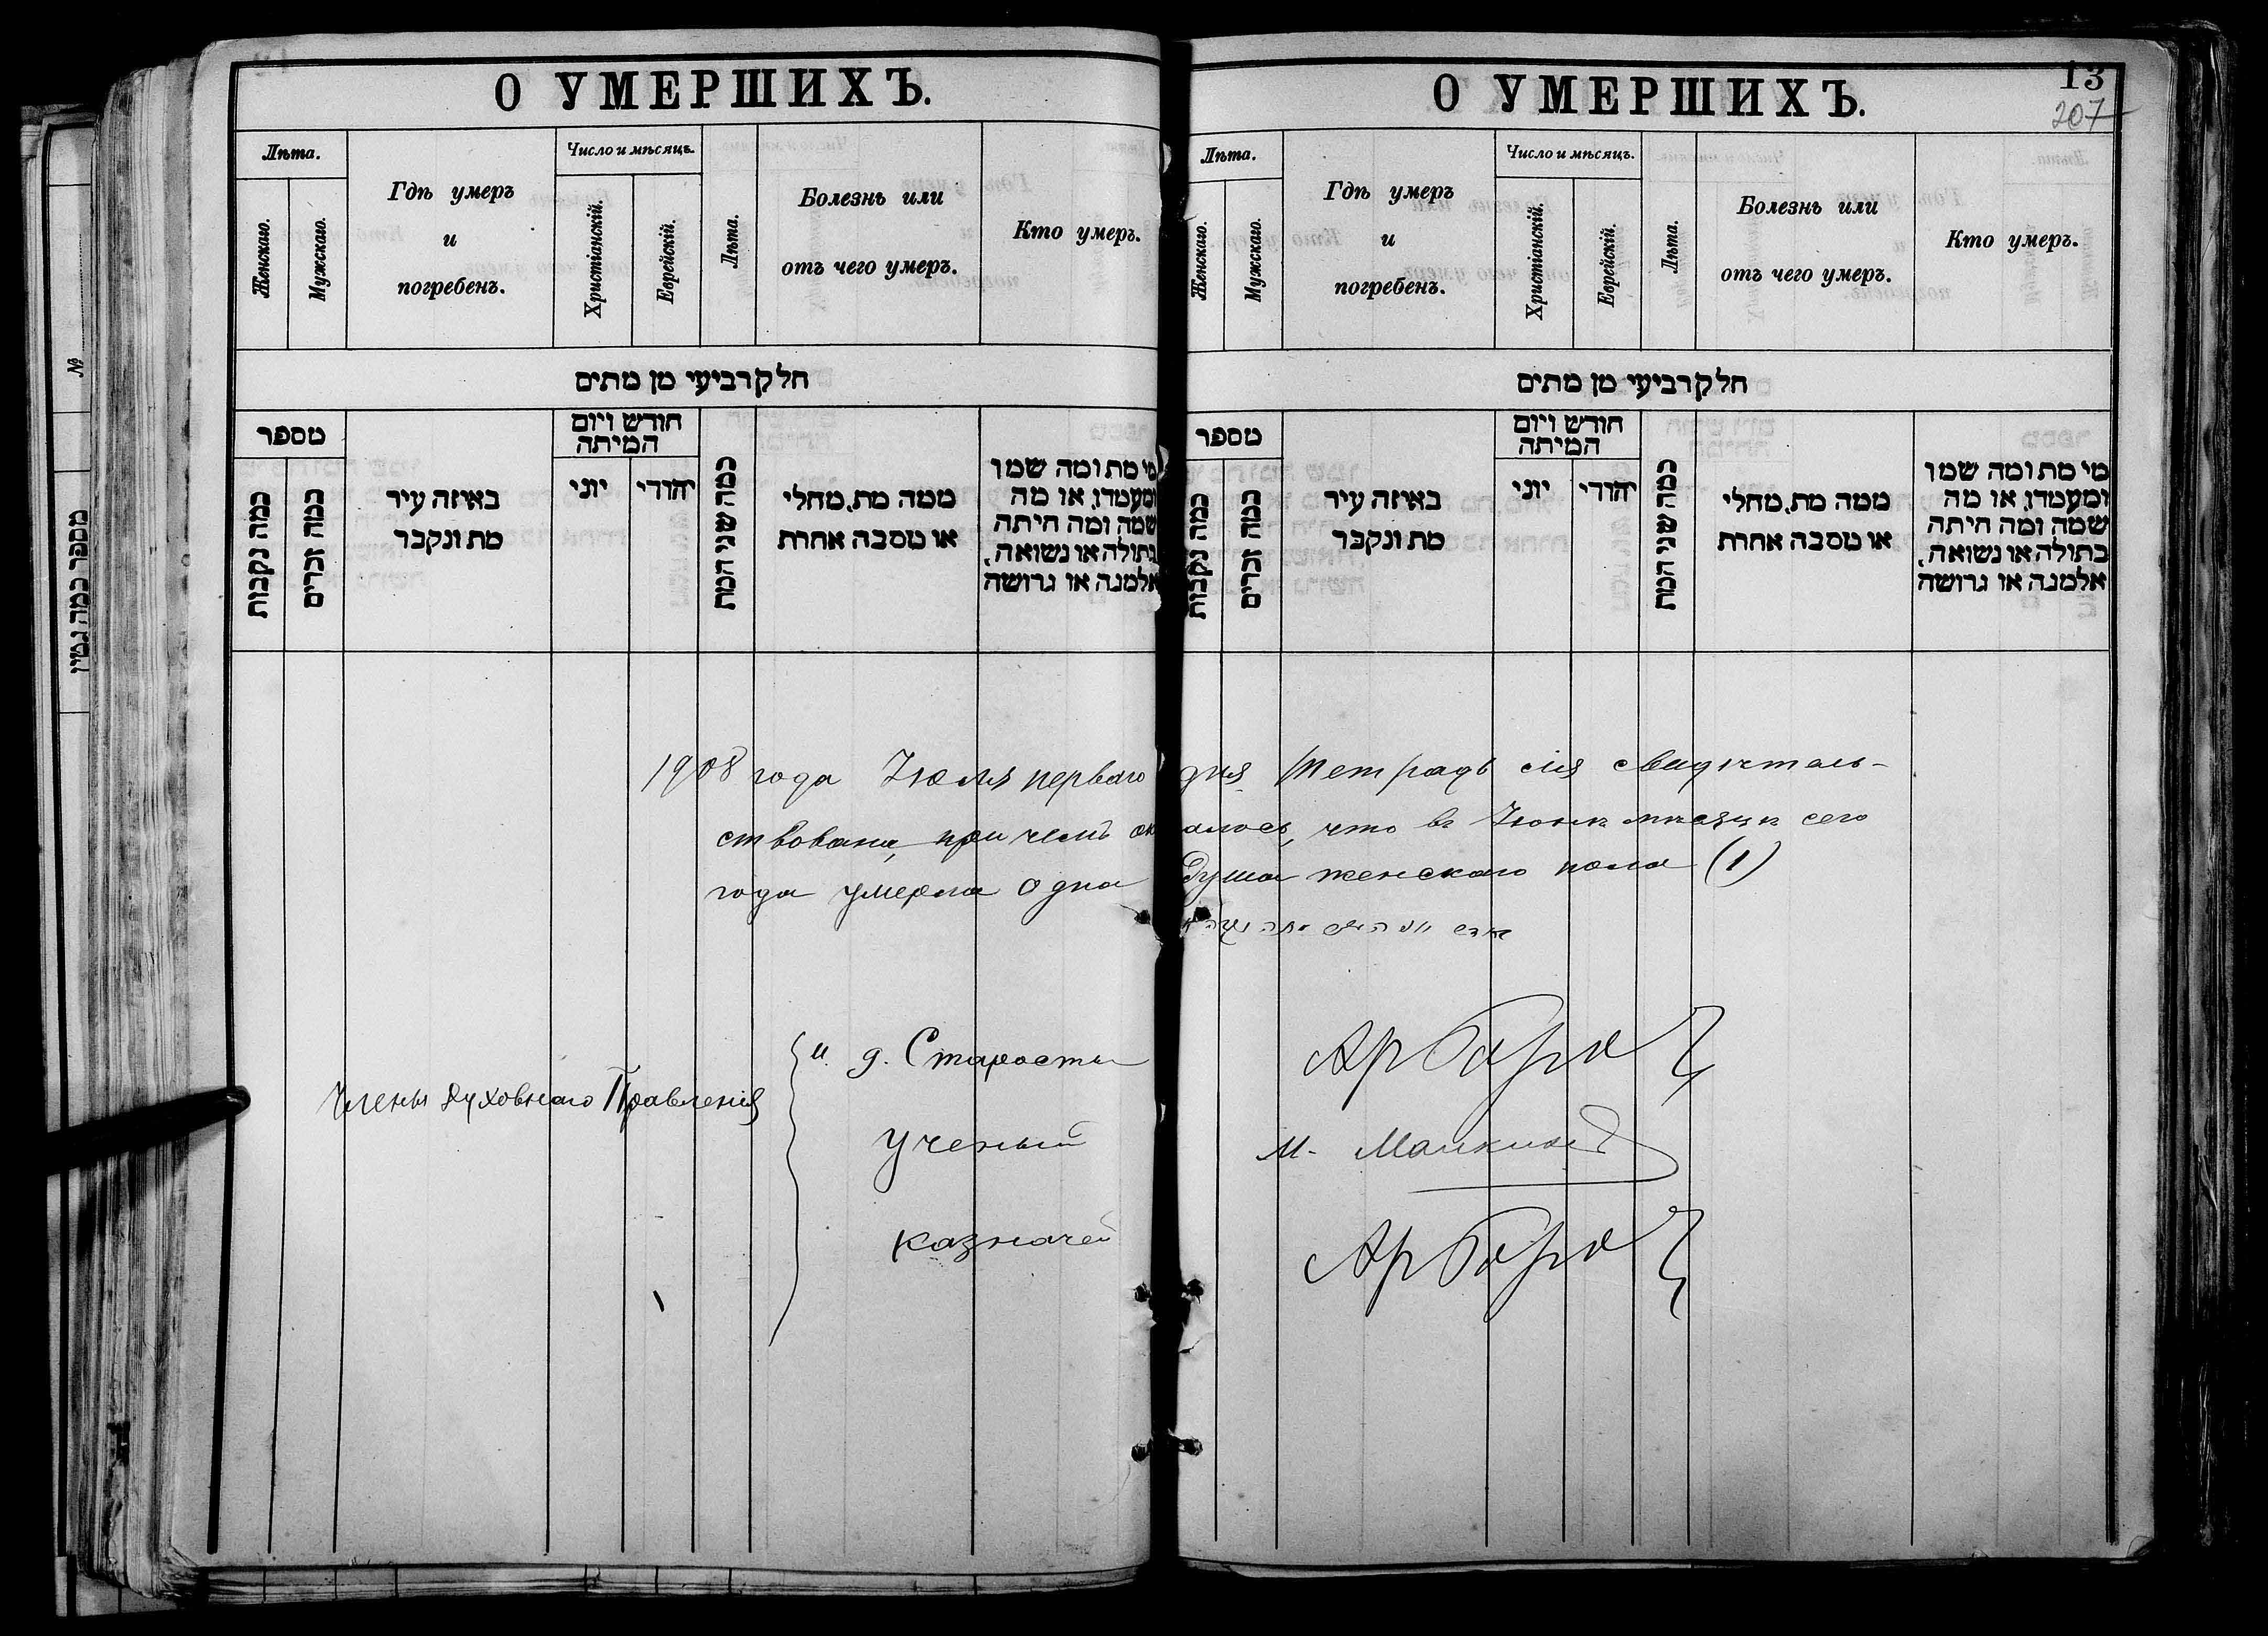 О УМЕРШИХЪ.
Лѣта.
Женскаго.
Мужскаго.
Гдѣ умеръ
и
погребенъ.
Число и мѣсяцъ.
Христіанскій.
Еврейскій.
Лѣта.
Болезнь или
отъ чего умеръ.
Кто умеръ.
חלק רביעי מן מתים
מספר
כמה נקבות
כמה זכרים
באיזה עיר
מת ונקבר
חודש ויום
המיתה
יוני
יהודי
כמה שני המת
ממה מת, מחלי
או מסבה אחרת
מי מת ומה שמו
ומעמדו, או מה
שמה ומה היתה
בתולה או נשואה,
אלמנה או גרושה
О УМЕРШИХЪ.
13
207
Лѣта.
Женскаго.
Мужскаго.
Гдѣ умеръ
и
погребенъ.
Число и мѣсяцъ.
Христіанскій.
Еврейскій.
Лѣта.
Болезнь или
отъ чего умеръ.
Кто умеръ.
חלק רביעי מן מתים
מספר
כמה נקבות
כמה זכרים
באיזה עיר
מת ונקבר
חודש ויום
המיתה
יוני
יהודי
כמה שני המת
ממה מת, מחלי
או מסבה אחרת
מי מת ומה שמו
ומעמדו, או מה
שמה ומה היתה
בתולה או נשואה,
אלמנה או גרושה
№
מספר כמה גטין
1908 года Іюля перваго дня Тетрадь сія свидѣтель-
ствована, при чемъ оказалось, что въ Іюнѣ мѣсяцѣ сего
года умерла одна душа женскаго пола (1)
Члены Духовнаго Правленія
и. д. Старосты
Ученый
М.
Казначей